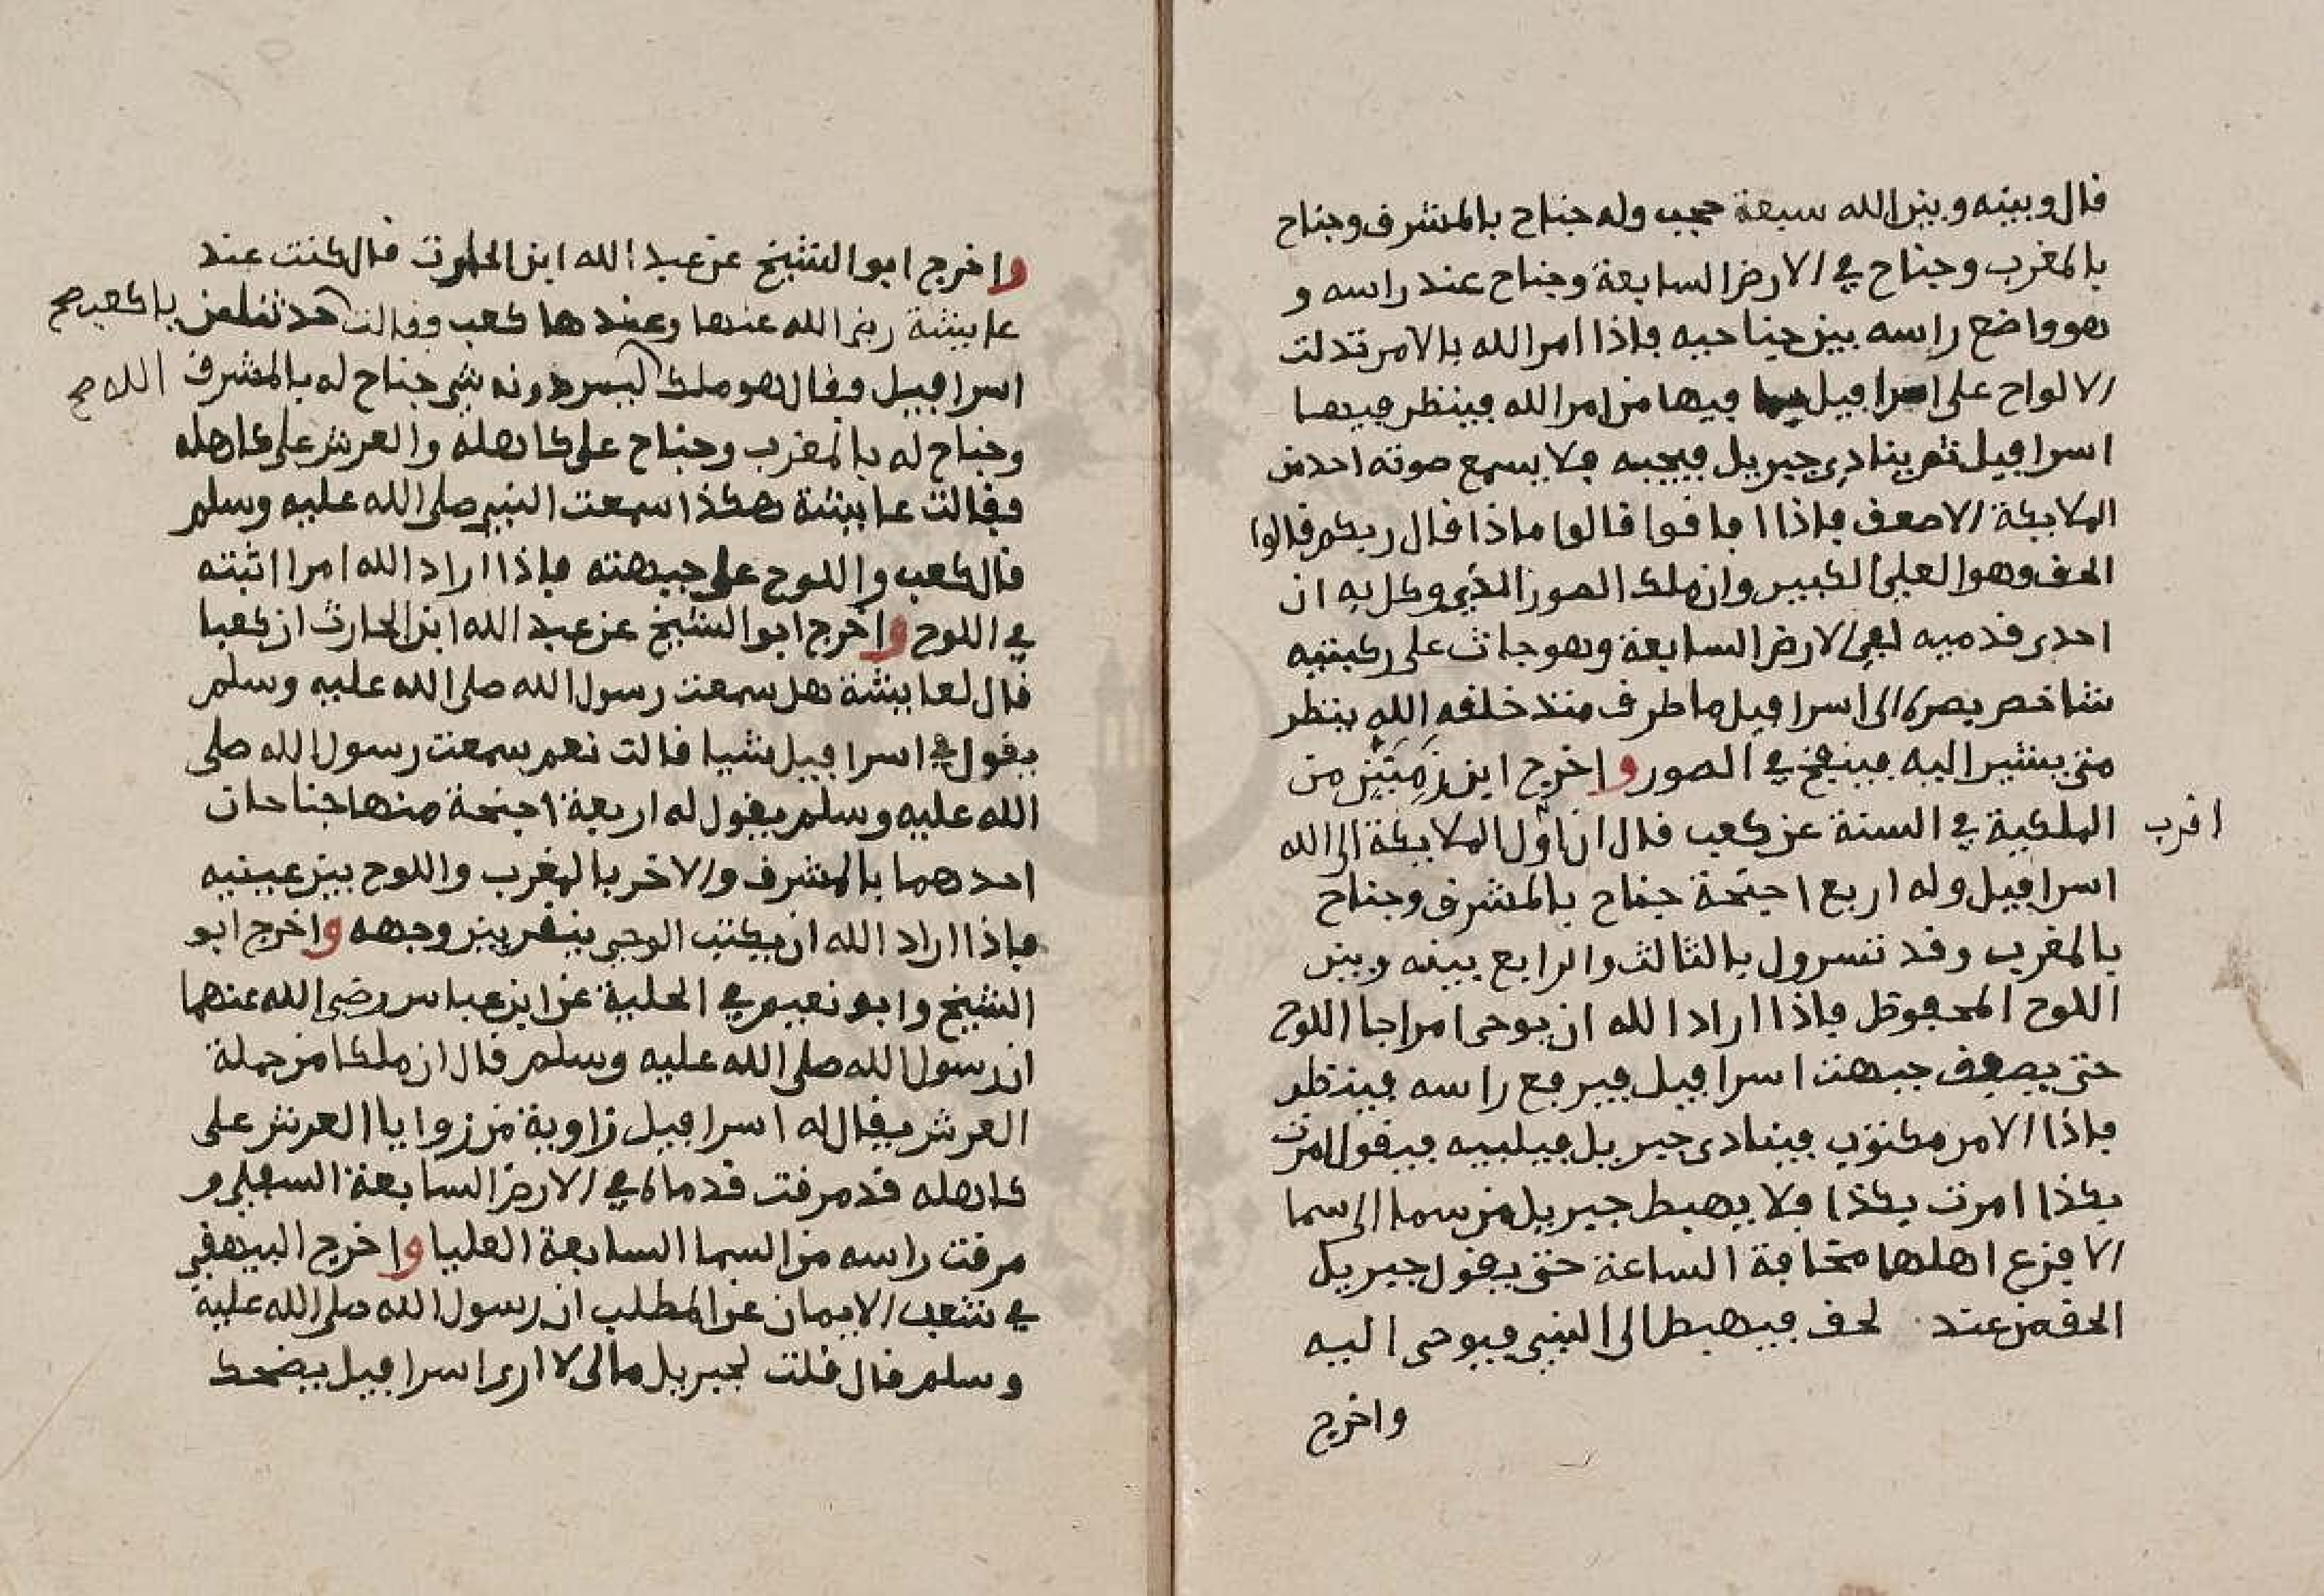 قال وبينه وبين الله سبعة حجب وله جناح بالمشرق وجناح
بالمغرب وجناح في الارض السابعة وجناح عند راسه و
هو واضع راسه بين جناحيه فاذا امر الله بالامر تدلت
الالواح على اسرافيل بما فيها من امر الله فينظر فيها
اسرافيل ثم ينادي جبريل فيجيبه فلا يسمع صوته احد من
الملايكة الا صعق فاذا افاقوا قالوا ماذا قال ربكم قالوا
الحق وهو العلي الكبير وان ملك الصور الذي وكل به ان
احدى قدميه لفي الارض السابعة وهو جاث على ركبتيه
شاخص بصره الى اسرافيل ما طرف منذ خلقه الله ينظر
متى يشير اليه فينفخ في الصور واخرج ابن زمنين من
الملكية في السنة عن كعب قال ان اول الملايكة الى الله
اقرب
اسرافيل وله اربع اجنحة جناح بالمشرق وجناح
بالمغرب وقد تسرول بالثالث والرابع بينه وبين
اللوح المحفوظ فاذا اراد الله ان يوحى امرا جا اللوح
حتى يصفق جبهت اسرافيل فيرفع راسه فينظر
فاذا الامر مكتوب فينادى جبريل فيلبيه فيقول امرت
بكذا امرت بكذا فلا يهبط جبريل من سما الى سما
الا فزع اهلها مخافة الساعة حتى يقول جبريل
الحق من عند لحق فيهبط الى النبي فيوحى اليه
واخرج
واخرج ابو الشيخ عن عبد الله ابن الحارث قال كنت عند
عايشة رضي الله عنها وعندها كعب فقالت حدثنا عن
يا كعب صح
اسرافيل فقال هو ملك ليس دونه شي جناح له بالمشرق
الله صح
وجناح له بالمغرب وجناح على كاهله والعرش على كاهله
فقالت عايشة هكذا سمعت النبي صلى الله عليه وسلم
قال كعب واللوح على جبهته فاذا اراد الله امرا اثبته
في اللوح واخرج ابو الشيخ عن عبد الله ابن الحارث ان كعبا
قال لعايشة هل سمعت رسول الله صلى الله عليه وسلم
يقول في اسرافيل شيا قالت نعم سمعت رسول الله صلى
الله عليه وسلم يقول له اربعة اجنحة منها جناحان
احدهما بالمشرق والاخر بالمغرب واللوح بين عينيه
فاذا اراد الله ان يكتب الوحي ينقر بين وجهه واخرج ابو
الشيخ وابو نعيم في الحلية عن ابن عباس رضي الله عنهما
ان رسول الله صلى الله عليه وسلم قال ان ملكا من حملة
العرش يقال له اسرافيل زاوية من زوايا العرش على
كاهله قد مرقت قدماه في الارض السابعة السفلى و
مرقت راسه من السما السابعة العليا واخرج البيهقي
في شعب الايمان عن المطلب ان رسول الله صلى الله عليه
وسلم قال قلت لجبريل مالى لا ارى اسرافيل يضحك